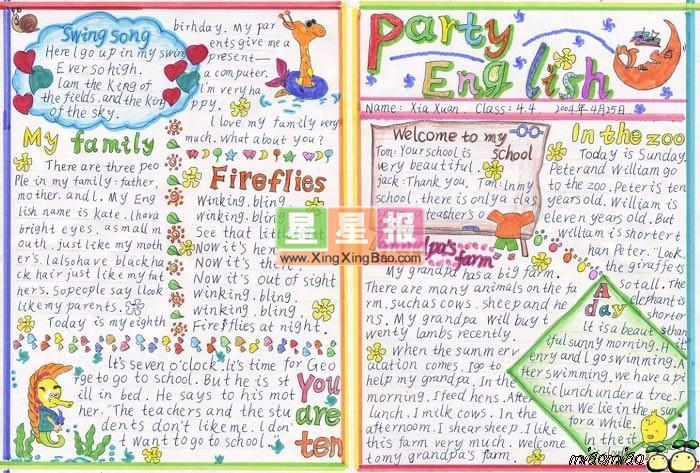 Swing song
Here I go up in my swing
Ever so high.
I am the King of
the fields, and the king
of the sky.
My family
There are three peo
ple in my family: father,
mother, and I. My Eng
lish name is Kate. I hava
bright eyes, a small m
outh, just like my moth
er's. I also have black ha
ck hair just like my fat
hers. So people say I look
like my parents.
Today is my eighth
birthday. My par
ents give me a
present—
a computer.
I'm very ha
ppy.
I love my family very
much. What about you?
Fireflies
Winking, bling,
winking, bling.
See that little
Now it's here
Now it's there,
Now it's out of sight
winking, bling,
winking, bling.
Fireflies at night.
It's seven o'clock. It's time for Geo
rge to go to school. But he is st
ill in bed. He says to his mot
her, "The teachers and the stu
dents don't like me. I don'
t want to go to school."
You
are
ten
Party
English
Name: Xia Xuan. Class: 4.4 2004年4月25日
Welcome to my
school
Tom: Your school is
very beautiful.
Jack: Thank you. Tom: In my
school, there is only a clas
teacher's o
pa's
farm"
My grandpa has a big farm.
There are many animals on the fa
rm, such as cows, sheep and he
ns. My grandpa will buy t
wenty lambs recently.
when the summer v
acation comes. I go to
help my grandpa. In the
morning. I feed hens. After
lunch. I milk cows. In the
afternoom. I shear sheep. I like
this farm very much. Welcome
to my grandpa's farm.
In the zoo
Today is Sunday.
Peter and William go
to the zoo. Peter is ten
years old. William is
eleven years old. But
William is shorter t
han Peter. "Look,
the giraffe is
so tall. The
elephant is
shorter
than
A
day
It is a beaut
iful sunny morning. H
enry and I go swimming. A
fter swimming. we have a pi
cnic lunch under a tree.
hen. We lie in the sun
for a while.
In the
星星报
www.XingXingBao.com
miaomiao